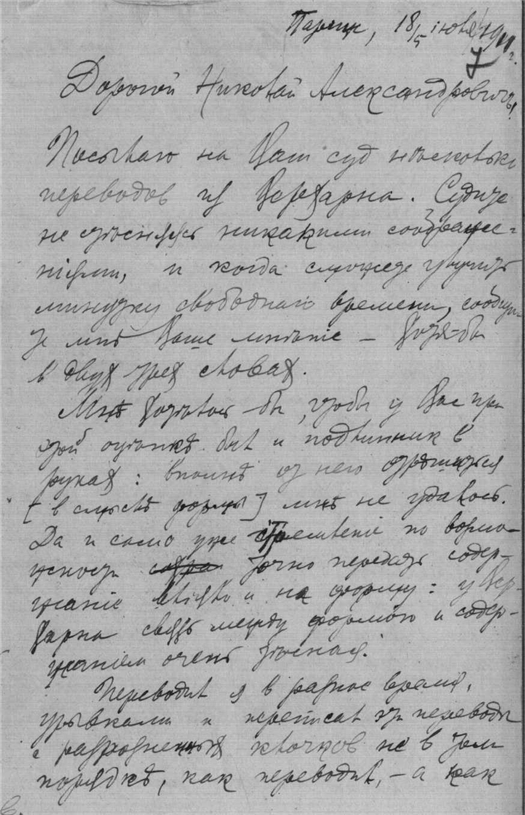 Париж, 18/5 июля 1911 г.
7
Дорогой Николай Александровичъ!
Посылаю на Ваш суд нѣсколько
переводов из Верхарна. Судите
не стѣсняясь никакими соображе-
нiями, и когда сможете улучить
минутку свободнаго времени, сообщи-
те мнѣ Ваше мнѣнiе – хотя-бы
в двух трех словах.
Мнѣ хотѣлось-бы, чтобы у Вас при
этой оцѣнкѣ был и подлинник в
руках: вполнѣ от него отрѣшиться
[в смыслѣ формы] мнѣ не удалось.
Да и само уже стремленiе по возмо-
жности точно передать содер-
жанiе влiяло и на форму: у Вер-
харна связь между формою и содер-
жанiем очень тѣсная.
Переводил я в разное время,
урывками и переписал эти переводы
с разрозненных клочков не в том
порядкѣ, как переводил, – а как